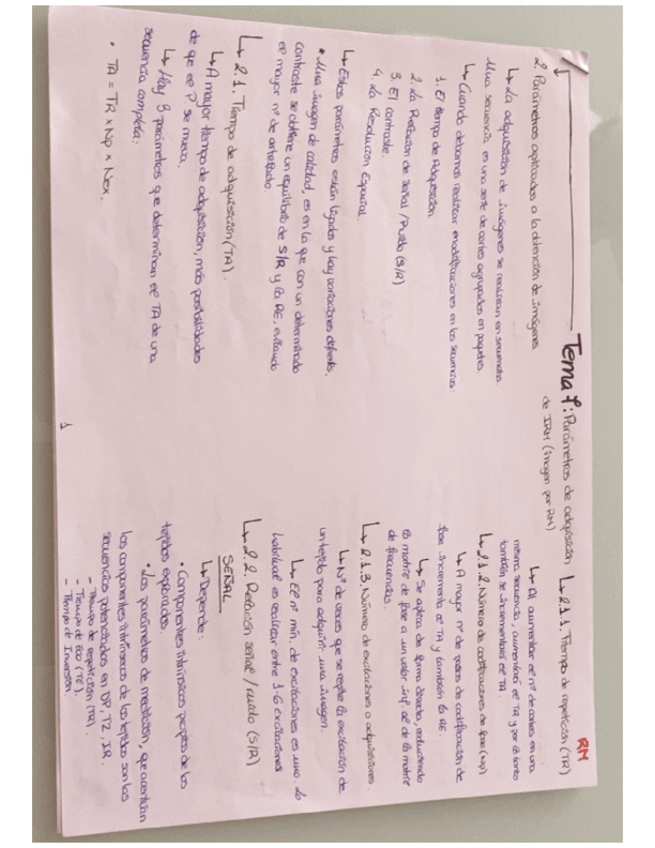 RM
Tema 9: Parámetros de adquisición
de IRM (imagen por RM)
2. Parámetros aplicados a la obtención de imágenes
↳ La adquisición de imágenes se realizan en secuencias.
Una secuencia es una serie de cortes agrupados en paquetes
↳ Cuando debamos realizar modificaciones en las secuencias:
1. El tiempo de Adquisición
2. La Relación de Señal / Ruido (S/R)
3. El contraste.
4. La Resolución Espacial
↳ Estos parámetros están ligados y hay variaciones
• Una imagen de calidad, es en la que con un determinado
contraste se obtiene un equilibrio de S/R y la RE, evitando
el mayor nº de artefactos.
↳ 2.1. Tiempo de adquisición (TA).
↳ A mayor tiempo de adquisición, más posibilidades
de que el P. se mueva.
↳ Hay 3 parámetros que determinan el TA de una
secuencia completa:
• TA = TR x Np x Nex.
1
↳ 2.1.1. Tiempo de repetición (TR)
↳ Al aumentar el nº de cortes en una
misma secuencia, aumentará el TR y por lo tanto
también se incrementará el TA.
↳ 2.1.2. Número de codificaciones de fase (Np)
↳ A mayor nº de pasos de codificación de
fase incrementa el TA y también la RE.
↳ Se aplica de forma directa, reduciendo
la matriz de fase a un valor inf. al de la matriz
de frecuencias.
↳ 2.1.3. Número de excitaciones o adquisiciones
↳ Nº de veces que se repite la excitación de
un tejido para adquirir una imagen.
↳ El nº mín. de excitaciones es uno. Lo
habitual es realizar entre 1-6 excitaciones
↳ 2.2. Relación señal / ruido (S/R)
SEÑAL
↳ Depende:
• Componentes intrínsecos propios de los
tejidos explorados.
• Los parámetros de medición, que
los componentes intrínsecos de los tejidos son las
secuencias potenciadas en DP, T2, IR.
– Tiempo de repetición (TR).
– Tiempo de eco (TE).
– Tiempo de Inversión.